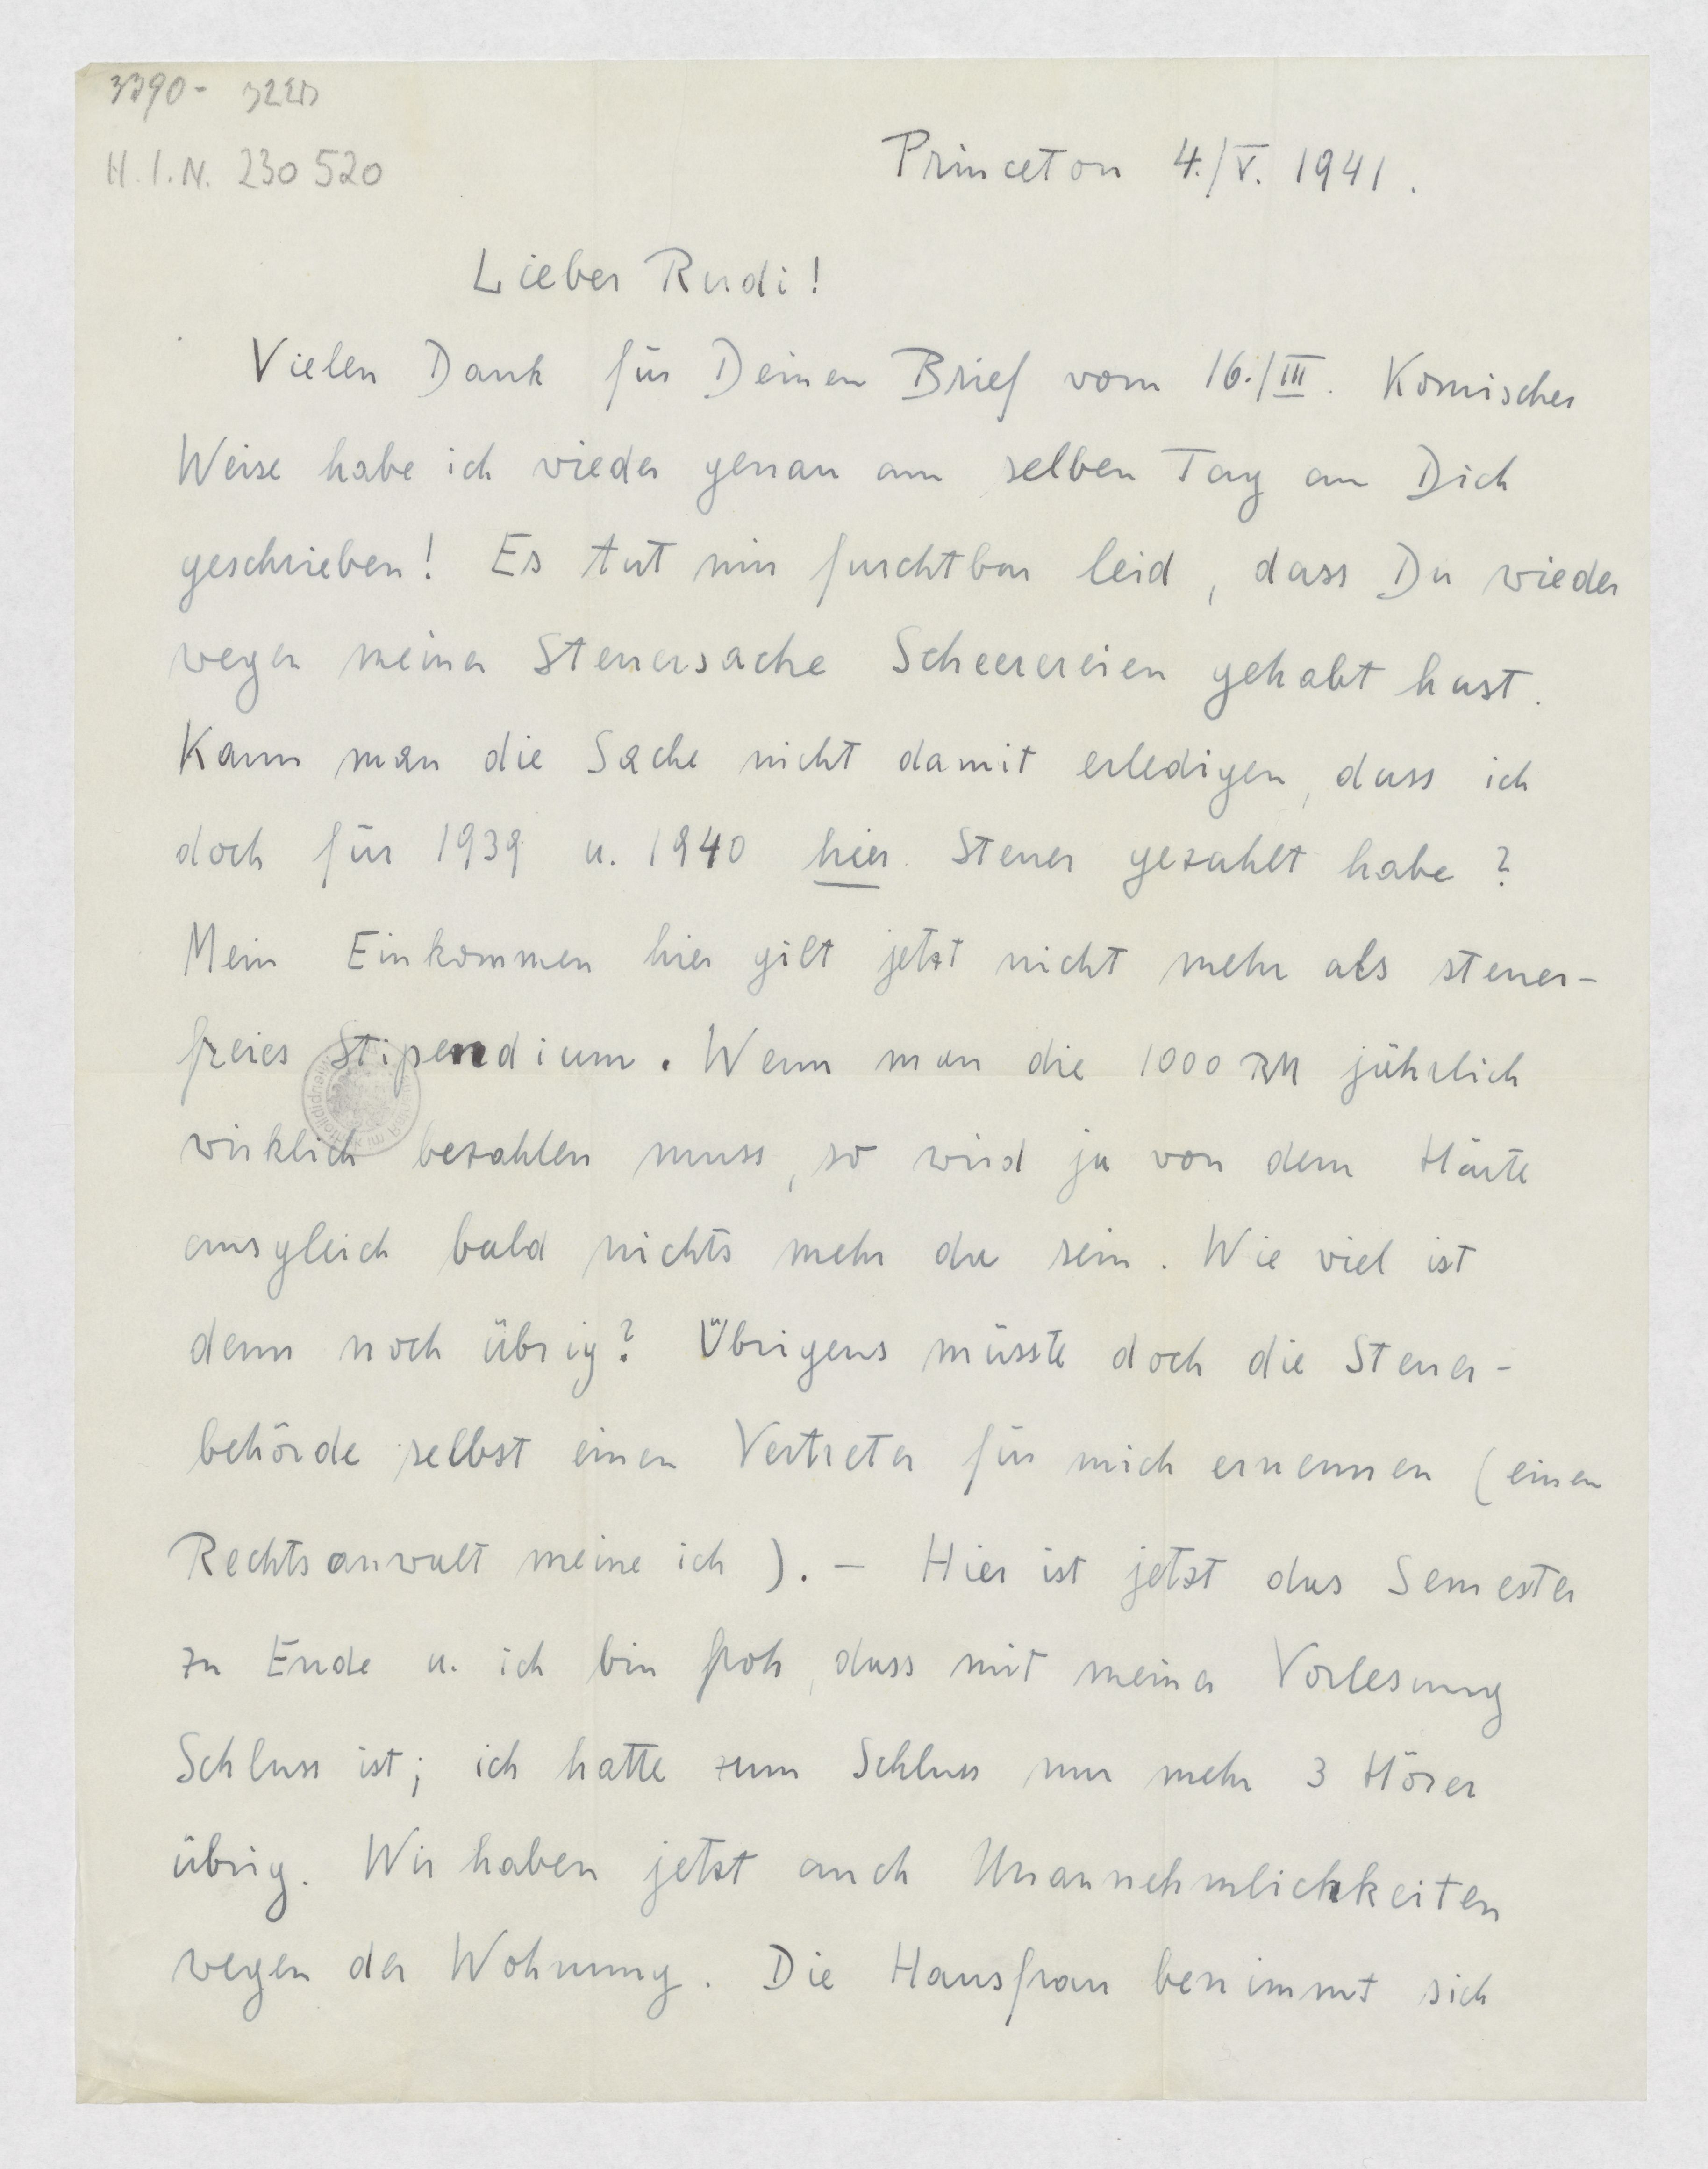 H.I.N. 230 520
Princeton 4./V. 1941.
Lieber Rudi!
Vielen Dank für Deinen Brief vom 16./III. Komischer
Weise habe ich wieder genau am selben Tag an Dich
geschrieben! Es tut mir furchtbar leid, dass Du wieder
wegen meiner Steuersache Scheerereien gehabt hast.
Kann man die Sache nicht damit erledigen, dass ich
doch für 1939 u. 1940 hier Steuer gezahlt habe?
Mein Einkommen hier gilt jetzt nicht mehr als steuer-
freies Stipendium. Wenn man die 1000 RM jährlich
wirklich bezahlen muss, so wird ja von dem Härte
ausgleich bald nichts mehr da sein. Wie viel ist
denn noch übrig? Übrigens müsste doch die Steuer-
behörde selbst einen Vertreter für mich ernennen (einen
Rechtsanwalt meine ich). – Hier ist jetzt das Semester
zu Ende u. ich bin froh, dass mit meiner Vorlesung
Schluss ist; ich hatte zum Schluss nur mehr 3 Hörer
übrig. Wir haben jetzt auch Unannehmlichkeiten
wegen der Wohnung. Die Hausfrau benimmt sich